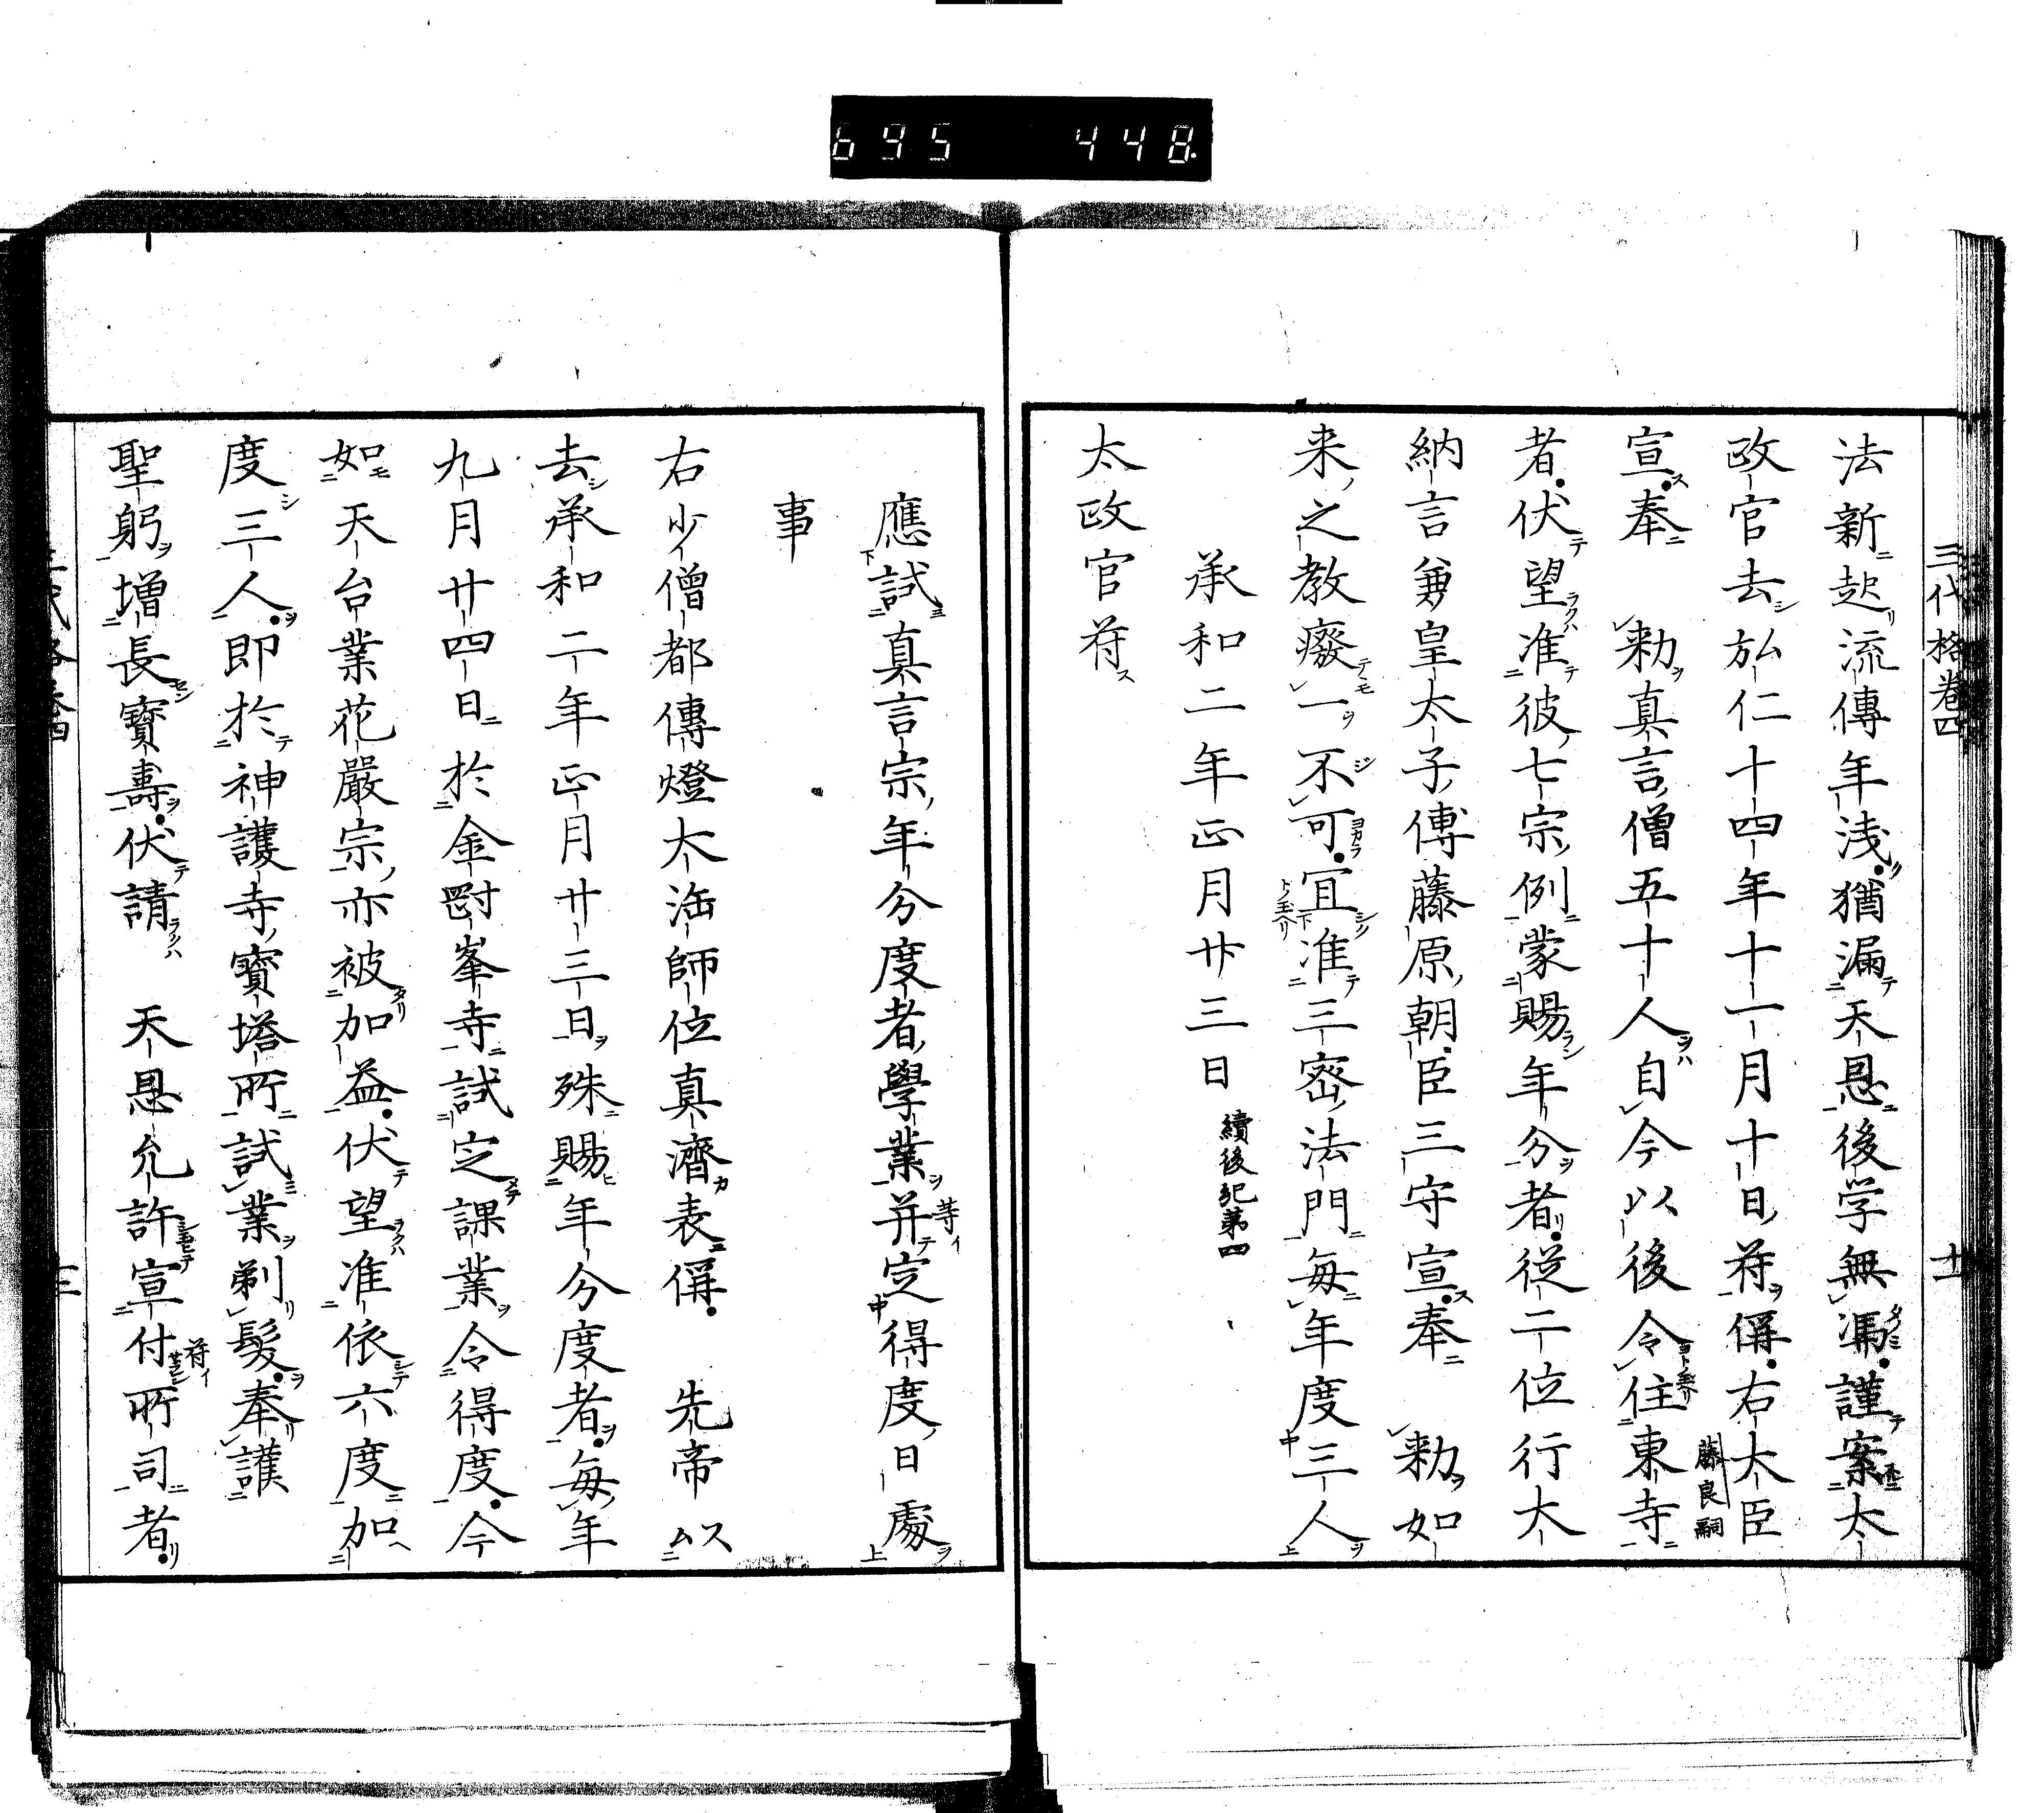 695 448.
三代格卷四 十一
法新起流傳年浅猶漏天恩後学無馮謹案太
政官去弘仁十四年十一月十日符偁右大臣
藤良嗣
宣奉 勑真言僧五十人自今以後令住東寺
者伏望准彼七宗例蒙賜年分者從二位行大
納言兼皇太子傅藤原朝臣三守宣奉 勑如
来之教癈一不可宜准三密法門每年度三人
承和二年正月廿三日 續後紀第四
太政官符
應試真言宗年分度者學業并定得度日處
等イ
事
右少僧都傳燈大法師位真濟表偁 先帝以
去承和二年正月廿三日殊賜年分度者每年
九月廿四日於金剛峯寺試定課業令得度今
如天台業花嚴宗亦被加益伏望准依六度加
度三人即於神護寺寶塔所試業剃髮奉護
聖躬增長寶壽伏請 天恩允許宣付所司者
符イ